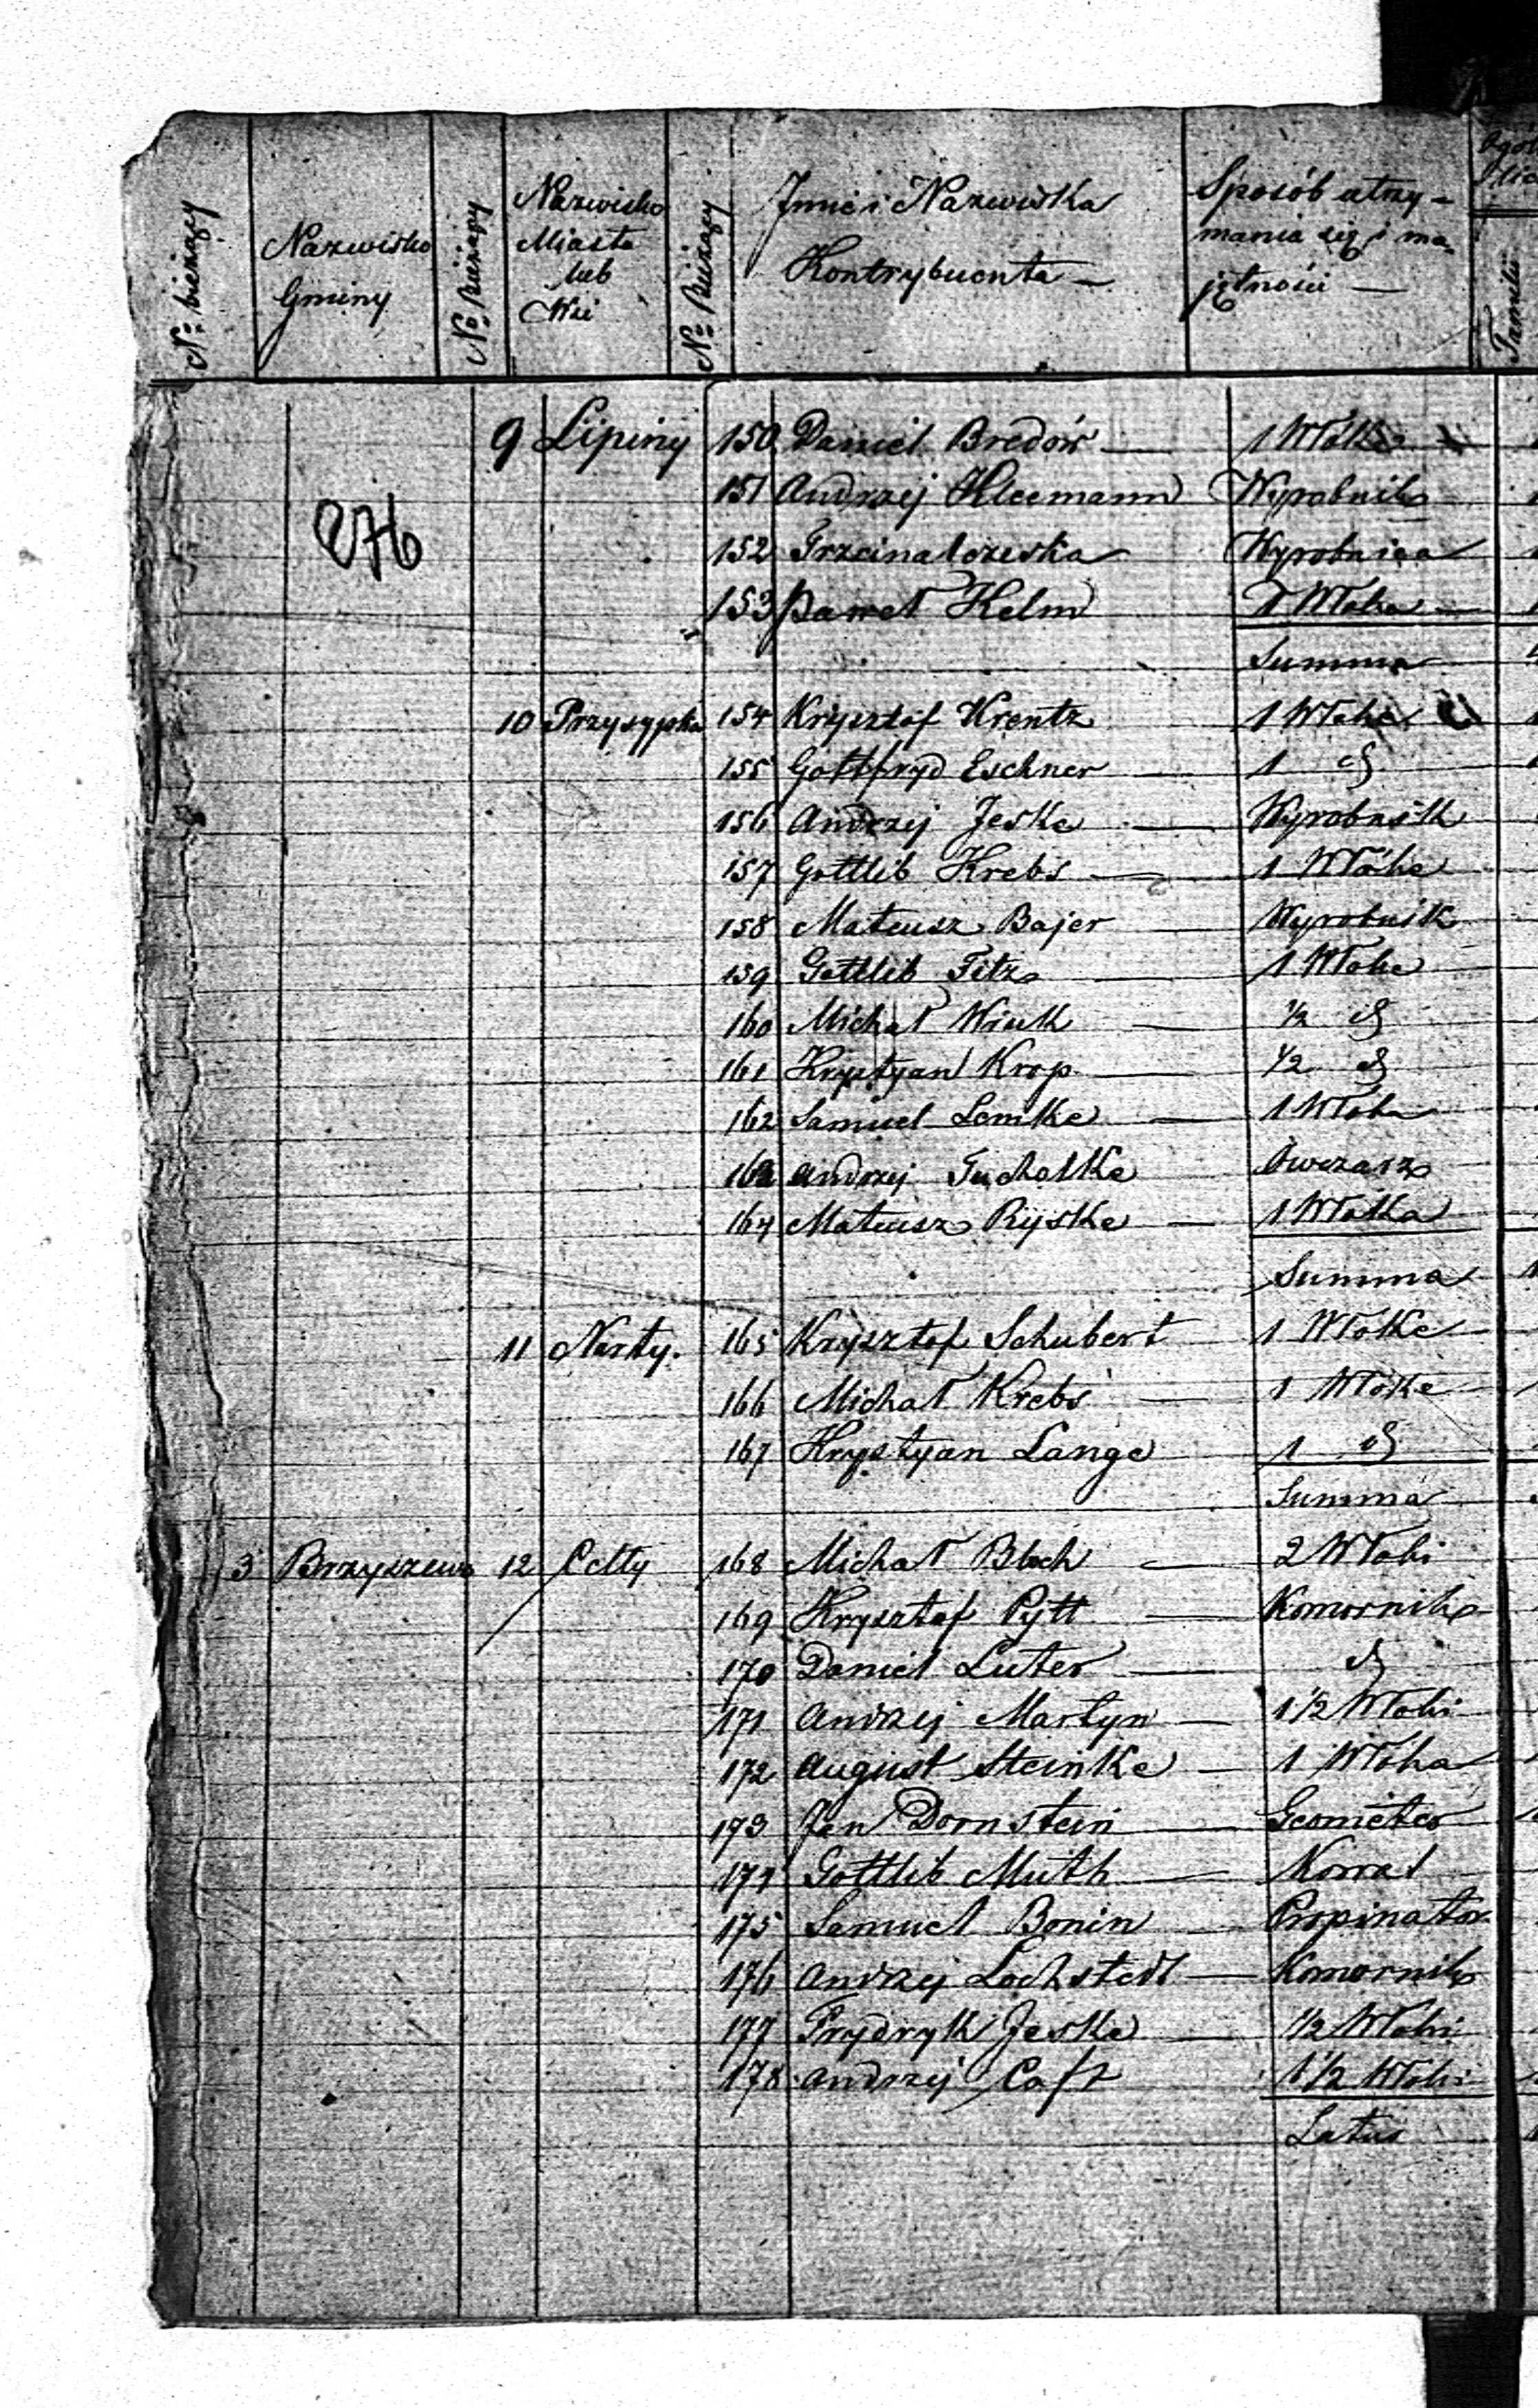 No bieżący
Nazwisko Gminy
No Bieżący
Nazwisko Miasta lub Wsi
No Bieżący
Jmie i Nazwiska Kontrybuenta —
Sposób utrzy-
mania się i ma-
jętności —
Familii
276
9 Lipiny 150 Daniel Bredów — 1 Włóka
151 Andrzej Kleemann Wyrobnik
152 Wyrobnica
153 Paweł Helm 1 Włoka
Summa
10 Przysypka 154 Krysztof Krentz 1 Włoka
155 Gottfryd Eschner — 1 d
156 Andrzej Jeske — Wyrobnik
157 Gottlib Krebs — 1 Włóka
158 Mateusz Bajer — Wyrobnik
159 Gottlib Fitz — 1 Włoka
160 Michał Kruk — 1/2 d
161 Krystyan Krop — 1/2 d
162 Samuel Lemke — 1 Włoka
163 Andrzej Tuchalke Owczarz
164 Mateusz Ryske — 1 Włoka
Summa
11 Narty. 165 Krysztof Schubert 1 Włoka
166 Michał Krebs — 1 Włoka
167 Krystyan Lange 1 d
Summa
3 Brzyszewo 12 Celty 168 Michał Blech — 2 Włoki
169 Krysztof Pytt — Komornik
170 Daniel Luter — d
171 Andrzej Martyn — 1 1/2 Włoki
172 August Steinke — 1 Włoka
173 Jan Dornstein — Geometer
174 Gottlib Muth — Kowal
175 Samuel Bonin — Propinator
176 Andrzej Lochstedt — Komornik
177 Frydryk Jeske — 1/2 Włoki
178 Andrzej 1 1/2 Włoki
Latus